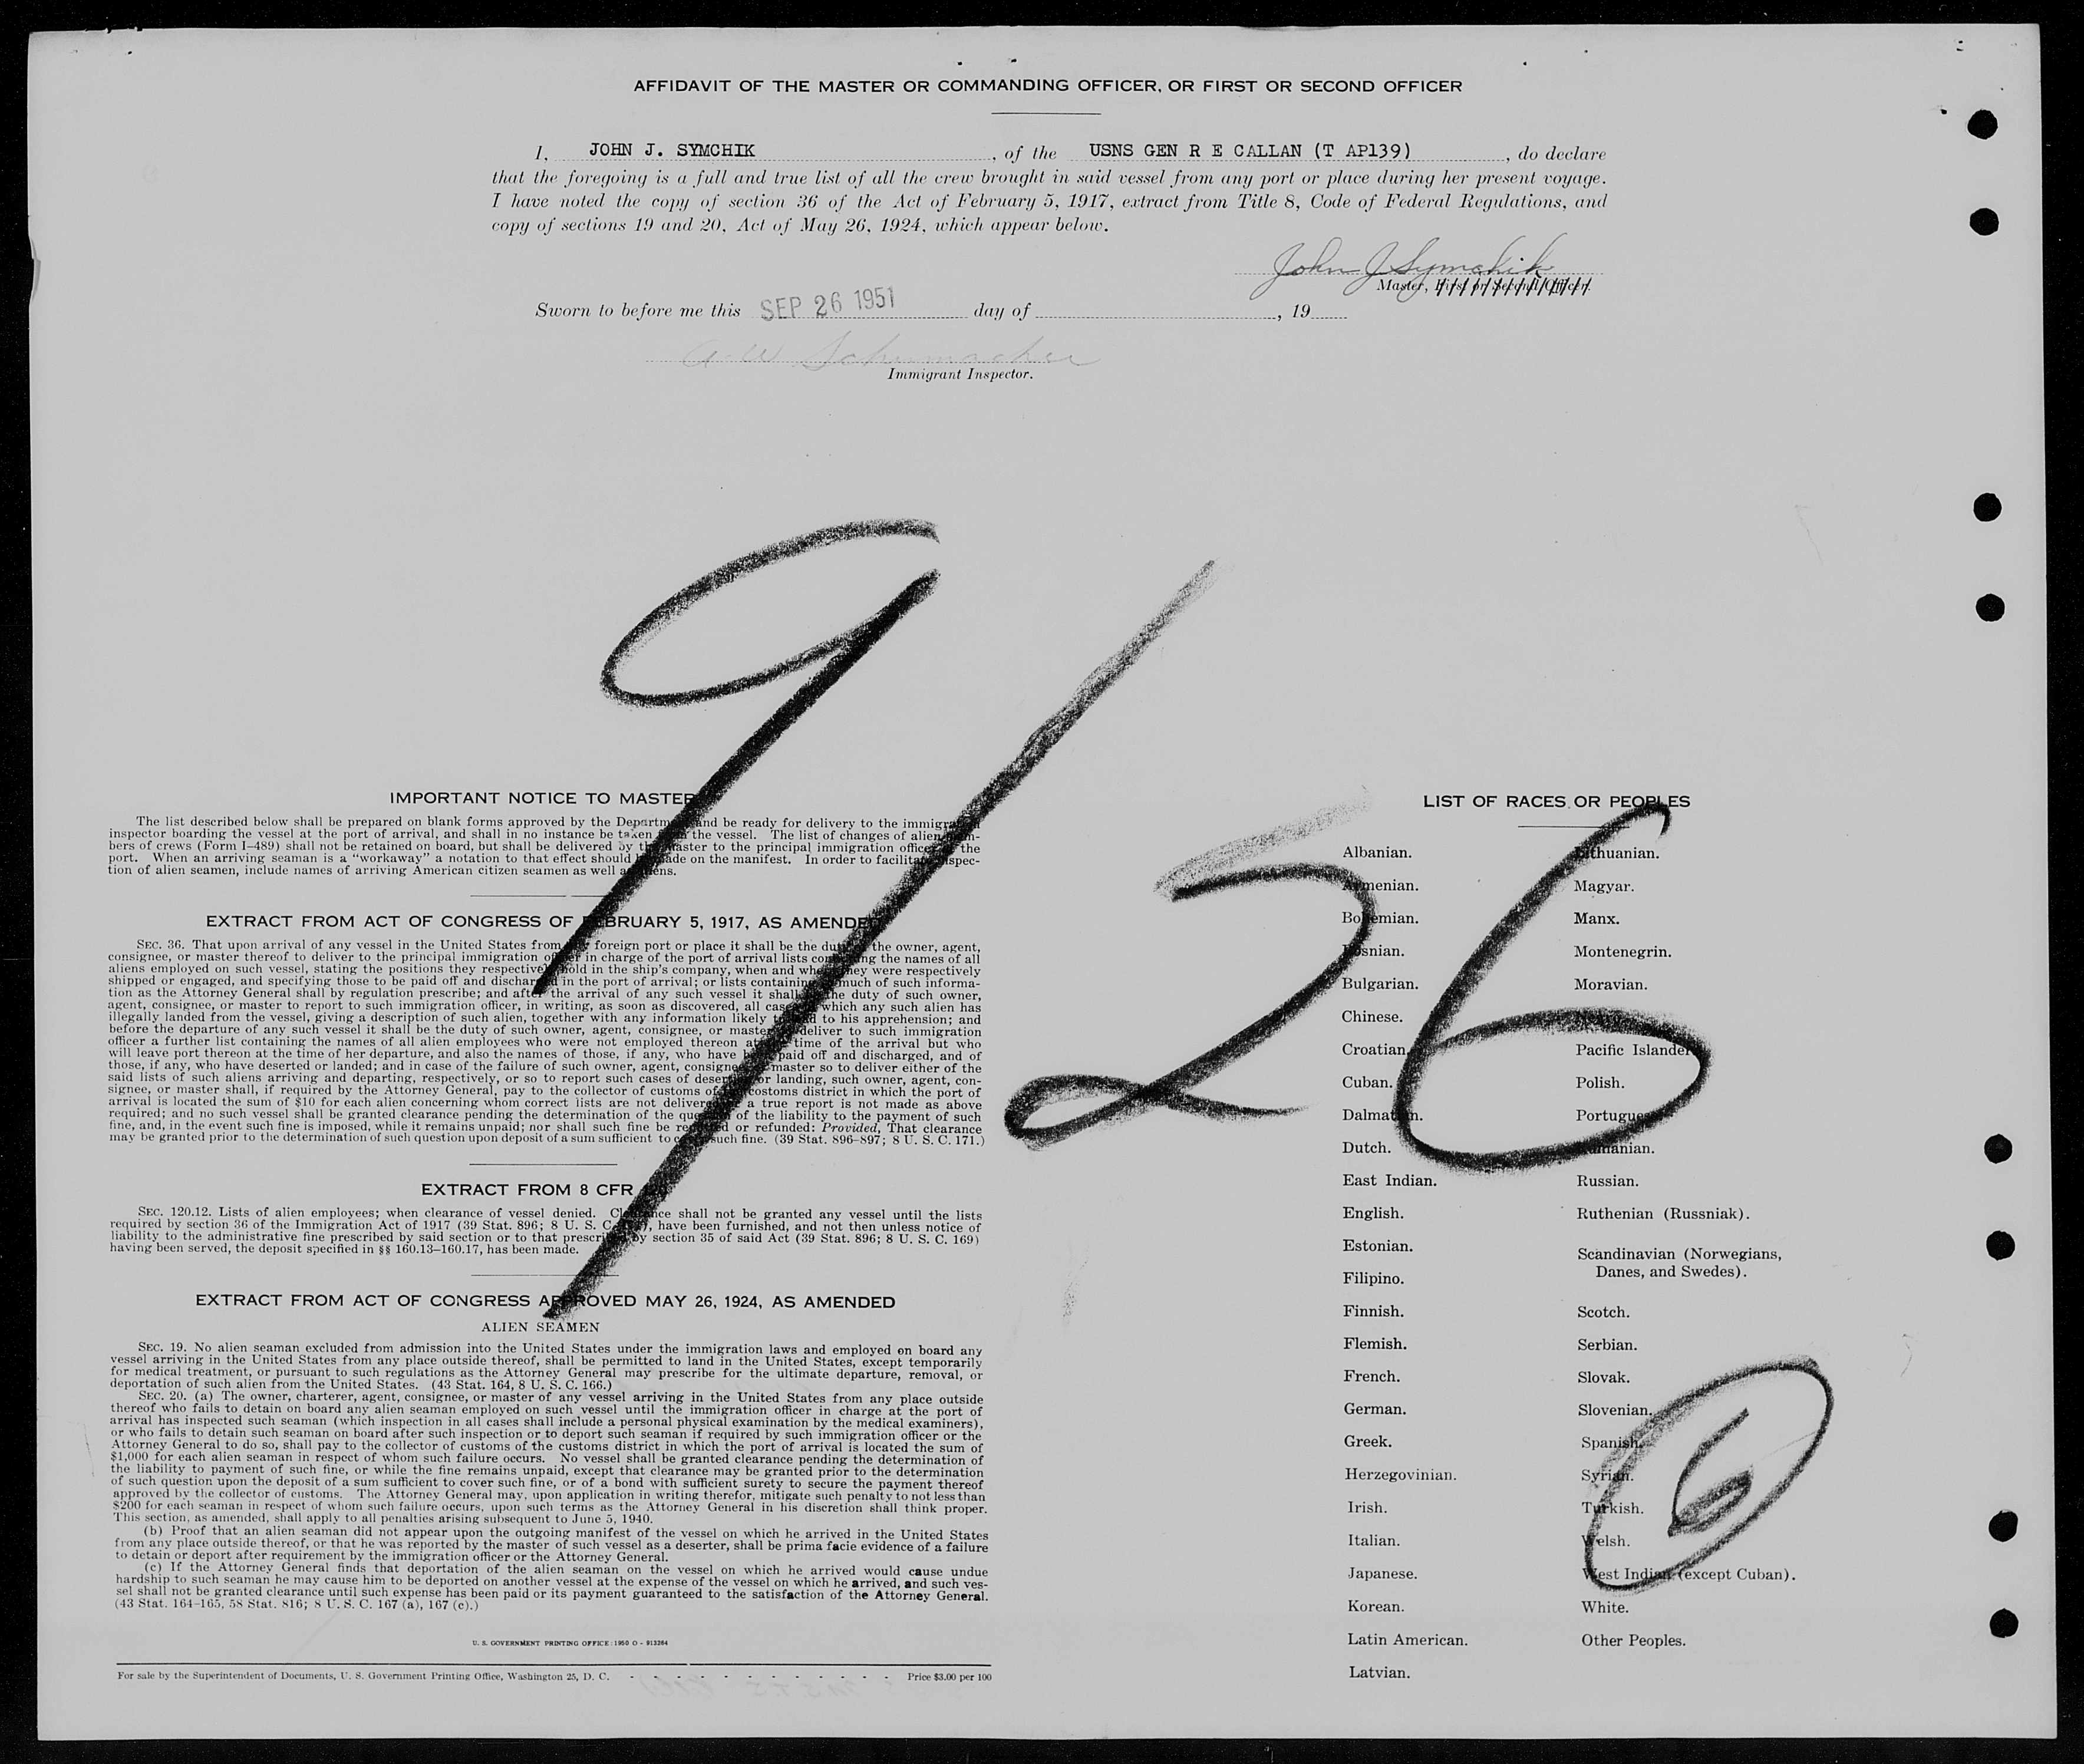 AFFIDAVIT OF THE MASTER OR COMMANDING OFFICER, OR FIRST OR SECOND OFFICER
I, JOHN J. SYMCHIK, of the USNS GEN R E CALLAN (T AP139), do declare
that the foregoing is a full and true list of all the crew brought in said vessel from any port or place during her present voyage.
I have noted the copy of section 36 of the Act of February 5, 1917, extract from Title 8, Code of Federal Regulations, and
copy of sections 19 and 20, Act of May 26, 1924, which appear below.
John J Symchik
Master, First or Second Officer.
Sworn to before me this SEP 26 1951 day of , 19
A. W. Schumacher
Immigrant Inspector.
9/26
IMPORTANT NOTICE TO MASTER
The list described below shall be prepared on blank forms approved by the Departm and be ready for delivery to the immigra
inspector boarding the vessel at the port of arrival, and shall in no instance be taken the vessel. The list of changes of alien mem-
bers of crews (Form I–489) shall not be retained on board, but shall be delivered by the master to the principal immigration officer the
port. When an arriving seaman is a “workaway” a notation to that effect should be made on the manifest. In order to facilitate inspec-
tion of alien seamen, include names of arriving American citizen seamen as well as aliens.
EXTRACT FROM ACT OF CONGRESS OF FEBRUARY 5, 1917, AS AMENDED
SEC. 36. That upon arrival of any vessel in the United States from any foreign port or place it shall be the duty of the owner, agent,
consignee, or master thereof to deliver to the principal immigration officer in charge of the port of arrival lists containing the names of all
aliens employed on such vessel, stating the positions they respectively hold in the ship's company, when and where they were respectively
shipped or engaged, and specifying those to be paid off and discharged in the port of arrival; or lists containing so much of such informa-
tion as the Attorney General shall by regulation prescribe; and after the arrival of any such vessel it shall be the duty of such owner,
agent, consignee, or master to report to such immigration officer, in writing, as soon as discovered, all cases in which any such alien has
illegally landed from the vessel, giving a description of such alien, together with any information likely to lead to his apprehension; and
before the departure of any such vessel it shall be the duty of such owner, agent, consignee, or master to deliver to such immigration
officer a further list containing the names of all alien employees who were not employed thereon at the time of the arrival but who
will leave port thereon at the time of her departure, and also the names of those, if any, who have been paid off and discharged, and of
those, if any, who have deserted or landed; and in case of the failure of such owner, agent, consignee, or master so to deliver either of the
said lists of such aliens arriving and departing, respectively, or so to report such cases of desertion or landing, such owner, agent, con-
signee, or master shall, if required by the Attorney General, pay to the collector of customs of the customs district in which the port of
arrival is located the sum of $10 for each alien concerning whom correct lists are not delivered or a true report is not made as above
required; and no such vessel shall be granted clearance pending the determination of the question of the liability to the payment of such
fine, and, in the event such fine is imposed, while it remains unpaid; nor shall such fine be remitted or refunded: Provided, That clearance
may be granted prior to the determination of such question upon deposit of a sum sufficient to cover such fine. (39 Stat. 896–897; 8 U. S. C. 171.)
EXTRACT FROM 8 CFR
SEC. 120.12. Lists of alien employees; when clearance of vessel denied. Clearance shall not be granted any vessel until the lists
required by section 36 of the Immigration Act of 1917 (39 Stat. 896; 8 U. S. C. ), have been furnished, and not then unless notice of
liability to the administrative fine prescribed by said section or to that prescribed by section 35 of said Act (39 Stat. 896; 8 U. S. C. 169)
having been served, the deposit specified in §§ 160.13–160.17, has been made.
EXTRACT FROM ACT OF CONGRESS APPROVED MAY 26, 1924, AS AMENDED
ALIEN SEAMEN
SEC. 19. No alien seaman excluded from admission into the United States under the immigration laws and employed on board any
vessel arriving in the United States from any place outside thereof, shall be permitted to land in the United States, except temporarily
for medical treatment, or pursuant to such regulations as the Attorney General may prescribe for the ultimate departure, removal, or
deportation of such alien from the United States. (43 Stat. 164, 8 U. S. C. 166.)
SEC. 20. (a) The owner, charterer, agent, consignee, or master of any vessel arriving in the United States from any place outside
thereof who fails to detain on board any alien seaman employed on such vessel until the immigration officer in charge at the port of
arrival has inspected such seaman (which inspection in all cases shall include a personal physical examination by the medical examiners),
or who fails to detain such seaman on board after such inspection or to deport such seaman if required by such immigration officer or the
Attorney General to do so, shall pay to the collector of customs of the customs district in which the port of arrival is located the sum of
$1,000 for each alien seaman in respect of whom such failure occurs. No vessel shall be granted clearance pending the determination of
the liability to payment of such fine, or while the fine remains unpaid, except that clearance may be granted prior to the determination
of such question upon the deposit of a sum sufficient to cover such fine, or of a bond with sufficient surety to secure the payment thereof
approved by the collector of customs. The Attorney General may, upon application in writing therefor, mitigate such penalty to not less than
$200 for each seaman in respect of whom such failure occurs, upon such terms as the Attorney General in his discretion shall think proper.
This section, as amended, shall apply to all penalties arising subsequent to June 5, 1940.
(b) Proof that an alien seaman did not appear upon the outgoing manifest of the vessel on which he arrived in the United States
from any place outside thereof, or that he was reported by the master of such vessel as a deserter, shall be prima facie evidence of a failure
to detain or deport after requirement by the immigration officer or the Attorney General.
(c) If the Attorney General finds that deportation of the alien seaman on the vessel on which he arrived would cause undue
hardship to such seaman he may cause him to be deported on another vessel at the expense of the vessel on which he arrived, and such ves-
sel shall not be granted clearance until such expense has been paid or its payment guaranteed to the satisfaction of the Attorney General.
(43 Stat. 164–165, 58 Stat. 816; 8 U. S. C. 167 (a), 167 (c).)
U. S. GOVERNMENT PRINTING OFFICE: 1950 O - 913264
For sale by the Superintendent of Documents, U. S. Government Printing Office, Washington 25, D. C. - - - - - - - - - - - - Price $3.00 per 100
LIST OF RACES OR PEOPLES
Albanian.
Armenian.
Bohemian.
Bosnian.
Bulgarian.
Chinese.
Croatian.
Cuban.
Dalmatian.
Dutch.
East Indian.
English.
Estonian.
Filipino.
Finnish.
Flemish.
French.
German.
Greek.
Herzegovinian.
Irish.
Italian.
Japanese.
Korean.
Latin American.
Latvian.
Lithuanian.
Magyar.
Manx.
Montenegrin.
Moravian.
Pacific Islander.
Polish.
Portuguese.
Rumanian.
Russian.
Ruthenian (Russniak).
Scandinavian (Norwegians,
Danes, and Swedes).
Scotch.
Serbian.
Slovak.
Slovenian.
Spanish.
Syrian.
Turkish.
Welsh.
West Indian (except Cuban).
White.
Other Peoples.
6